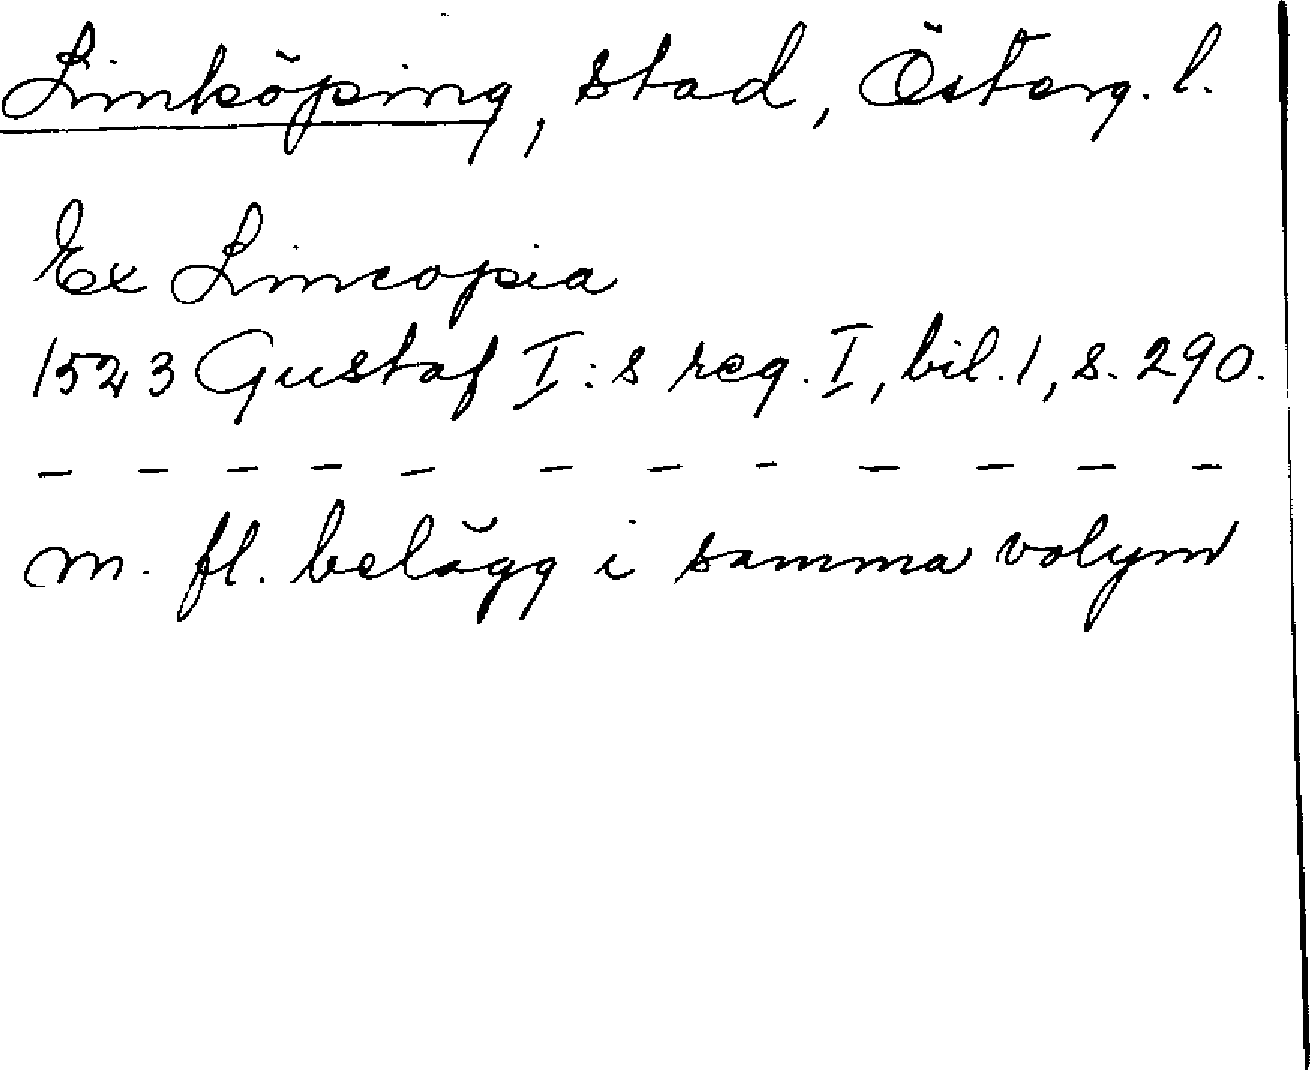 Linköping, stad, Österg. l.
Ex Lincopia
1523 Gustaf I:s reg. I, bil. 1, s. 290.
— — — — — — — — — — — —
m. fl. belägg i samma volym